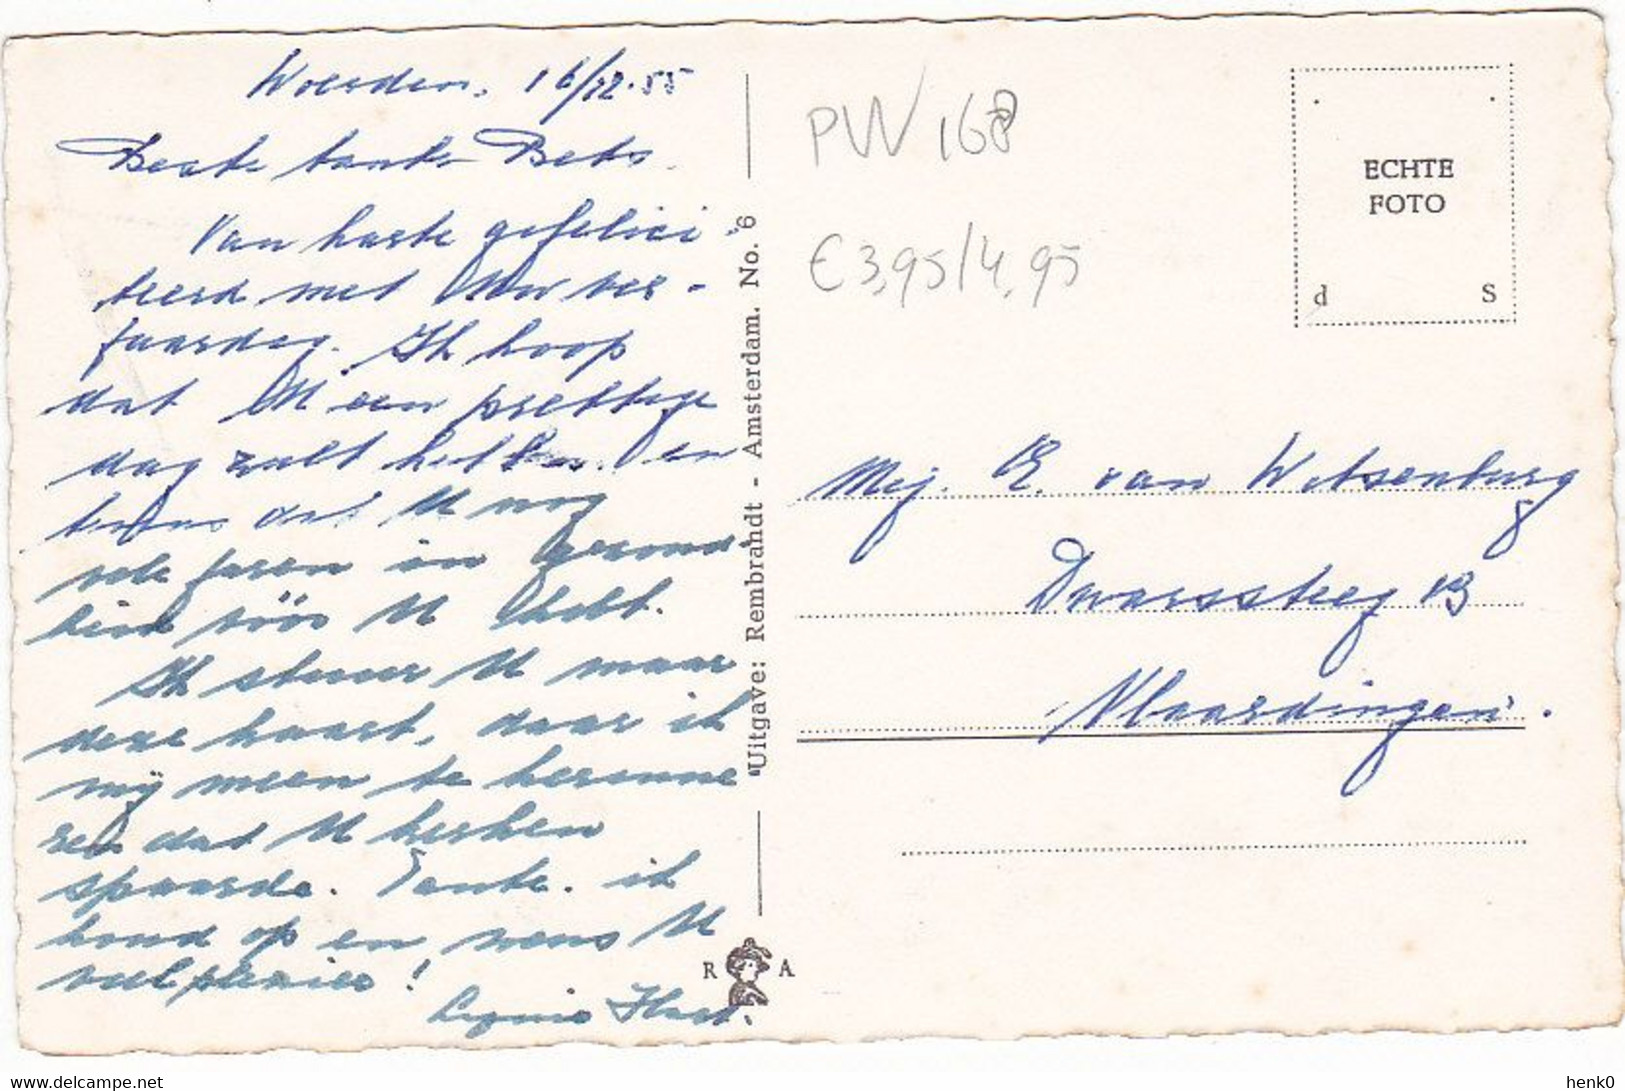 Woerden, 16/12.55
Beste tante Bets.
Van harte gefelici-
teerd met Uw ver-
jaardag. Ik hoop
dat U een prettige
dag zult hebben en
tevens dat U nog
vele jaren in gezond-
heid voor U hebt.
Ik stuur U maar
deze kaart, daar ik
mij meen te herinne
ren dat U kerken
spaarde. Tante. ik
houd op en wens U
veel plezier!
"Uitgave: Rembrandt - Amsterdam. No. 6
R A
PW 168
€ 3,95/4,95
ECHTE
FOTO
d S
Mej. E. van Witsenburg
Dwarssteeg 13
Vlaardingen.
www.delcampe.net
henk0